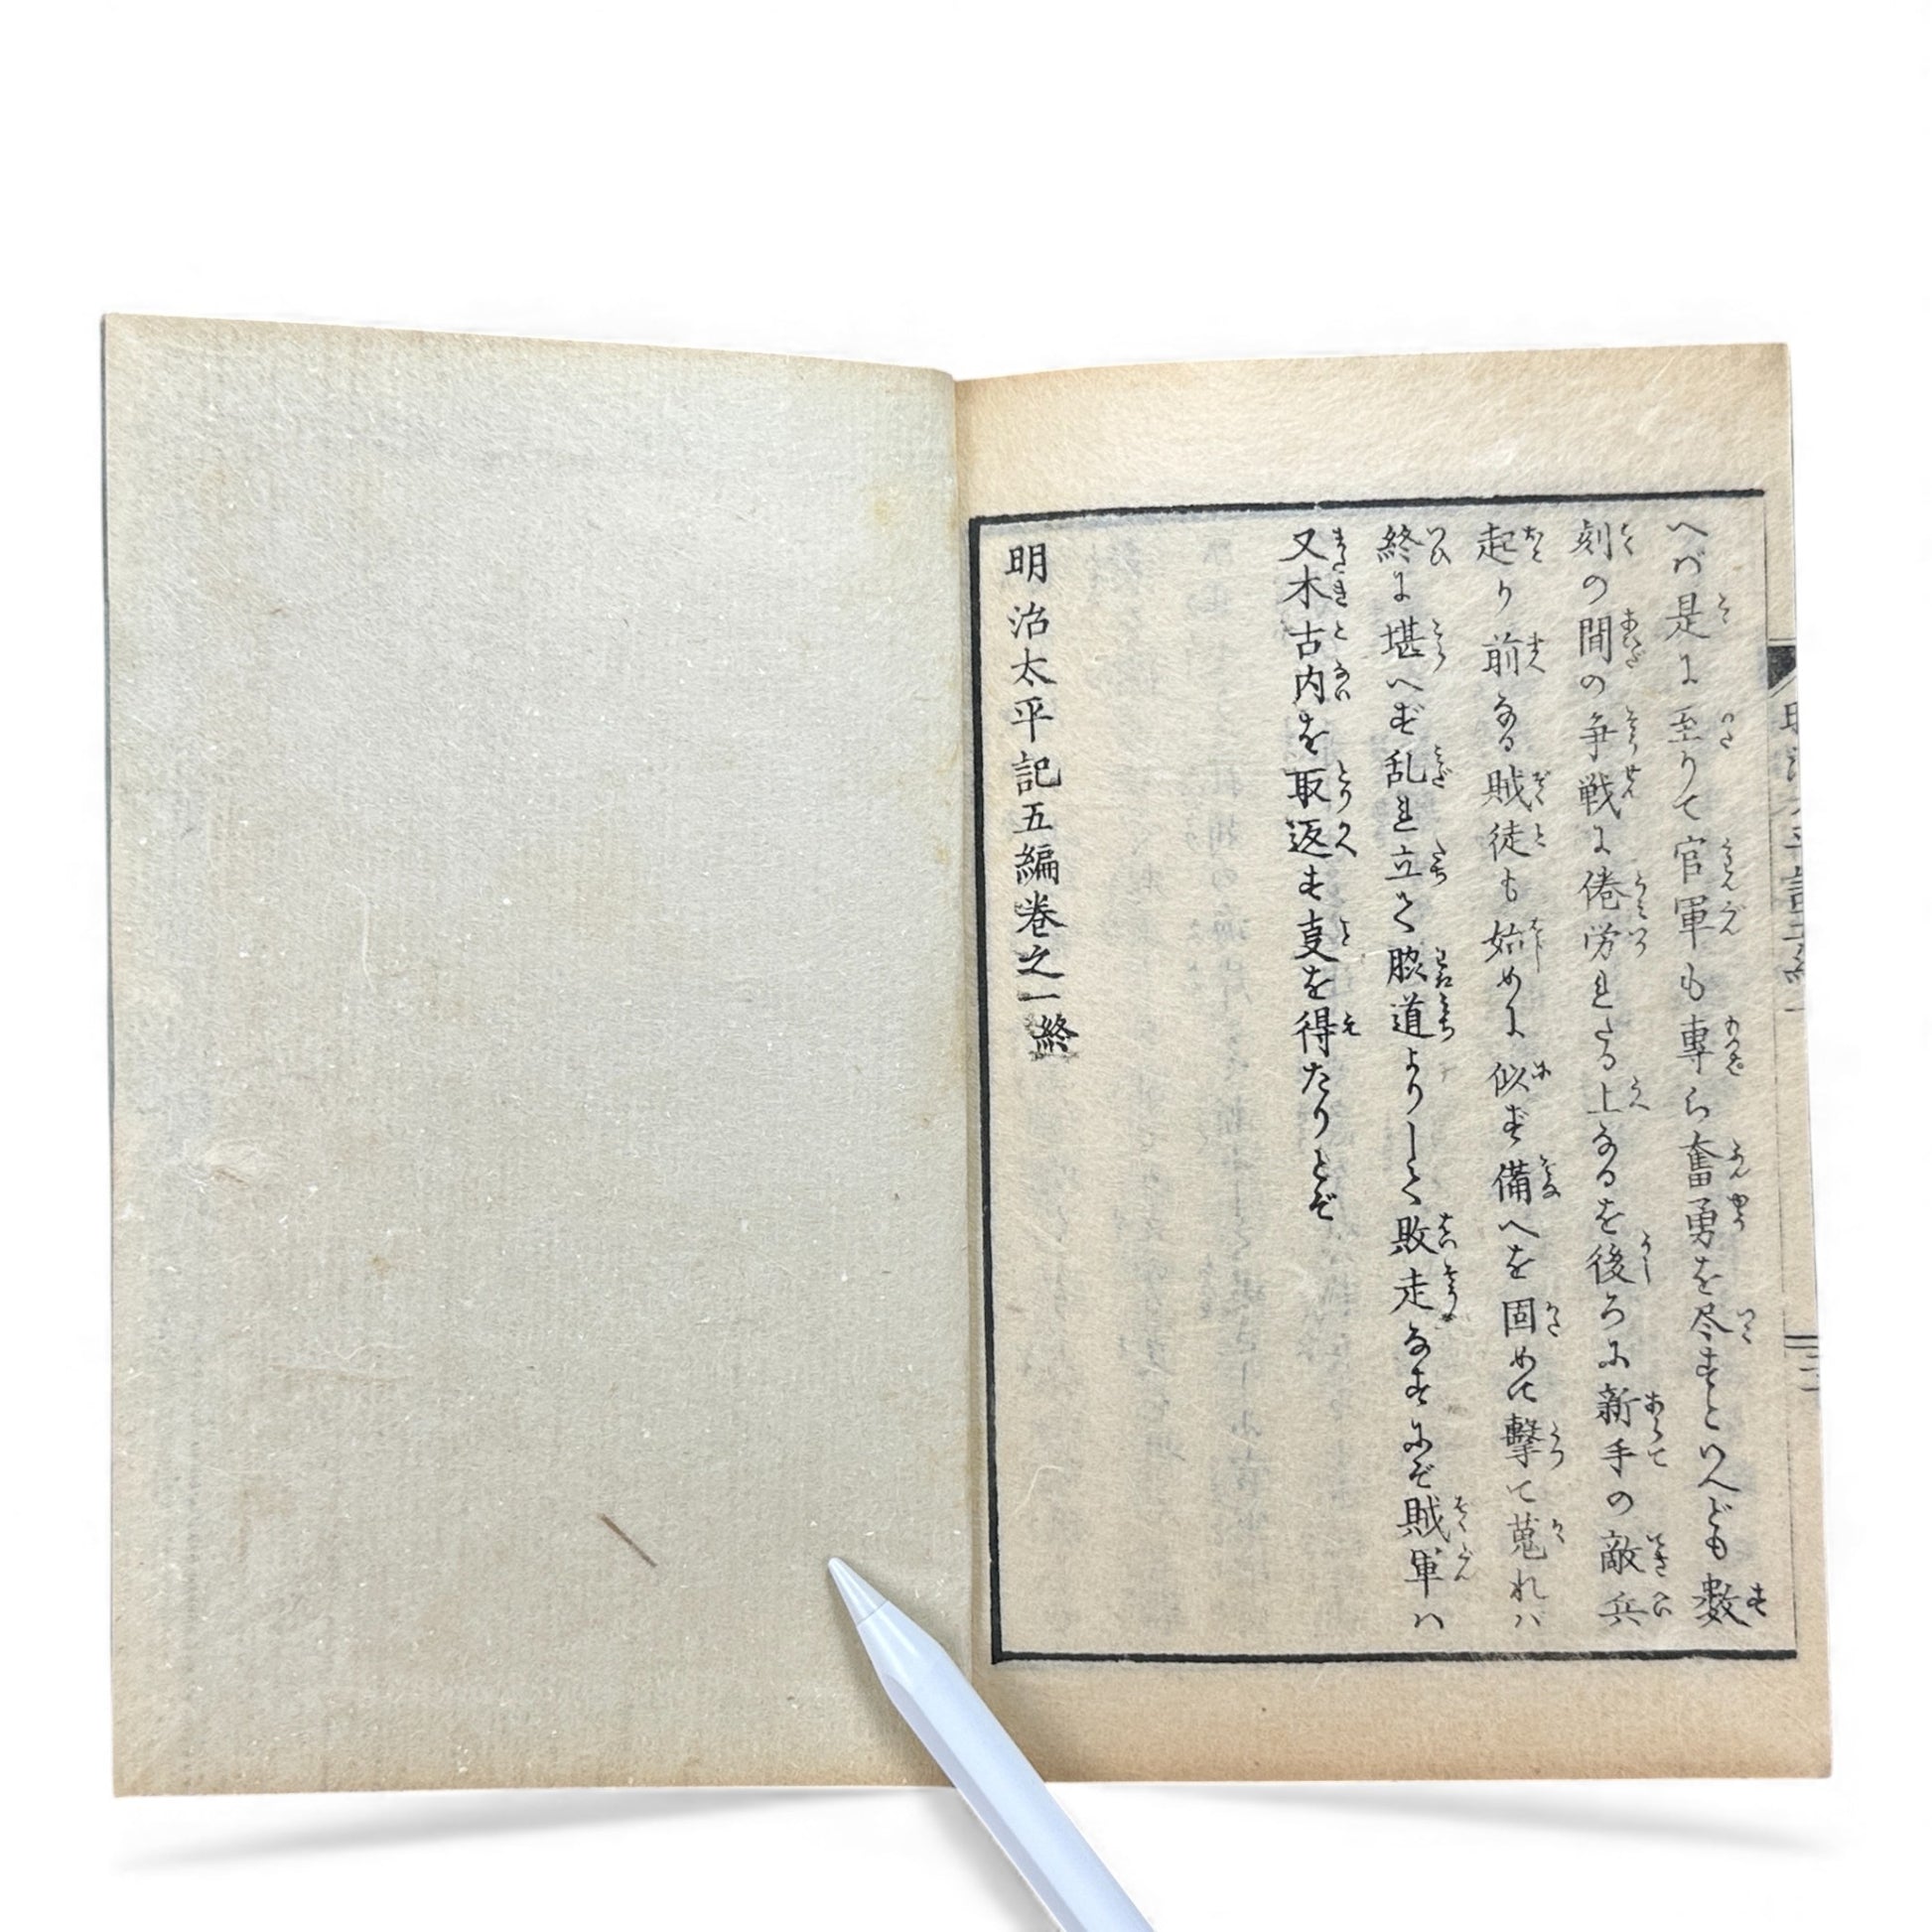 へバ是に至りて官軍も専ら奮勇を尽すといへども数
刻の間の争戦に倦労れたる上なるを後ろに新手の敵兵
起り前なる賊徒も始めに似ず備へを固めて撃て蒐れハ
終に堪へず乱れ立て脇道よりして敗走なすにぞ賊軍ハ
又木古内を取返す叓を得たりとぞ
明治太平記五編巻之一終